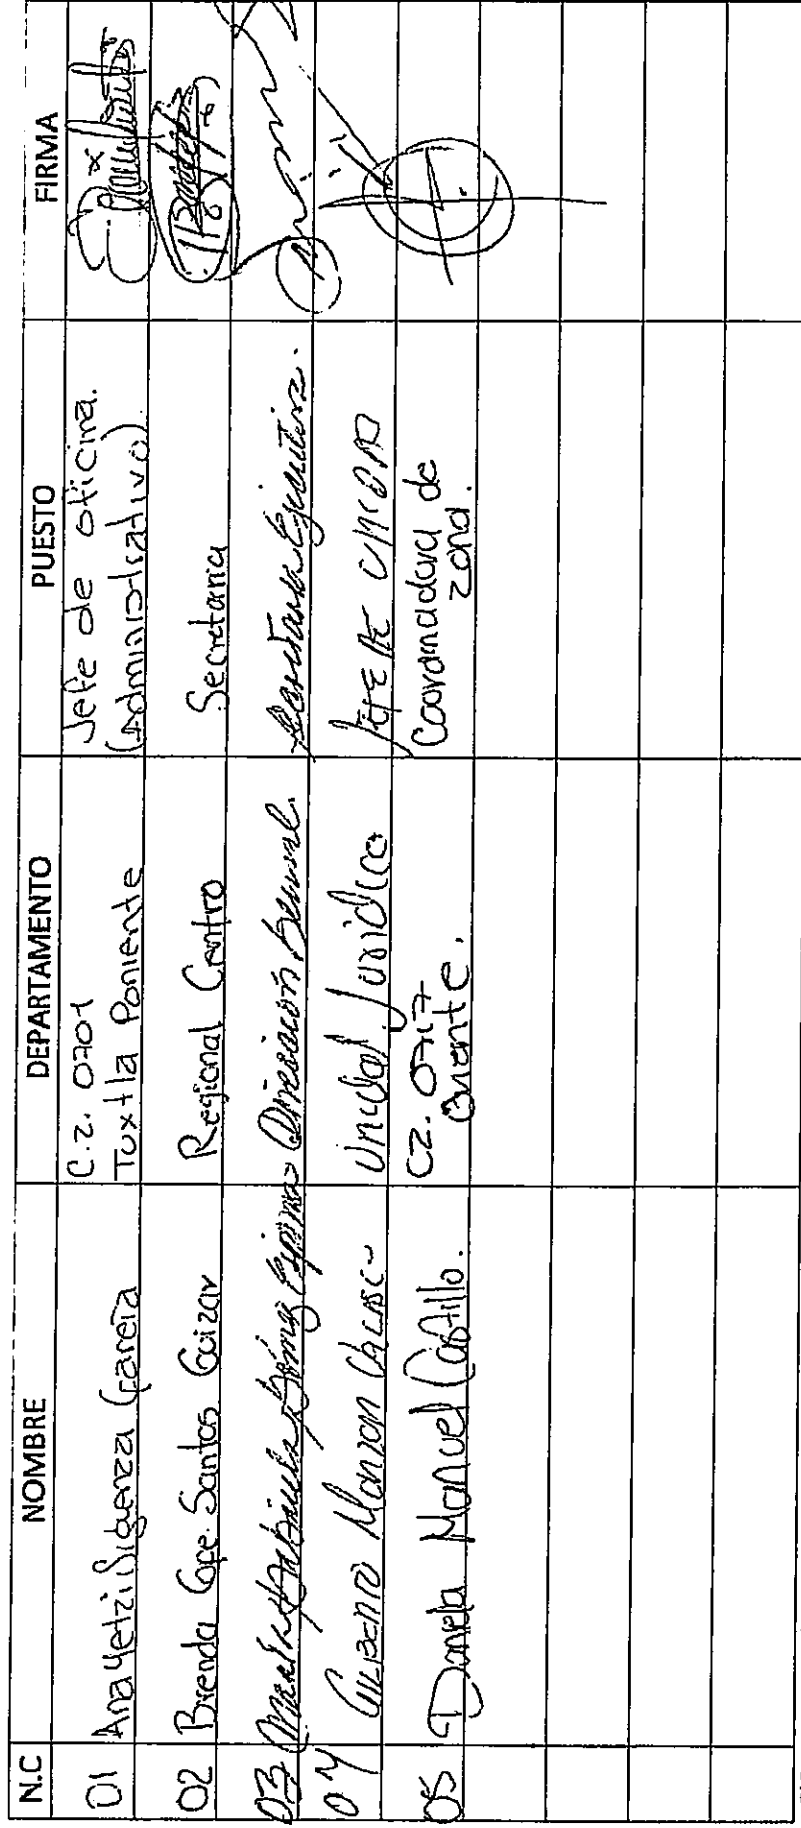 N.C NOMBRE DEPARTAMENTO PUESTO FIRMA
01 Anayetzi Sigüenza García C.Z. 0701 Tuxtla Poniente Jefe de oficina. (Administrativo)
02 Brenda Gpe. Santos Guizar Regional Centro Secretaria
03 Gómez Espinosa Dirección General. Secretaria Ejecutiva.
04 Unidad Jurídica JEFE DE UNIDAD
05 Daniela Manuel Castillo. CZ. 0717 Oriente. Coordinadora de zona.